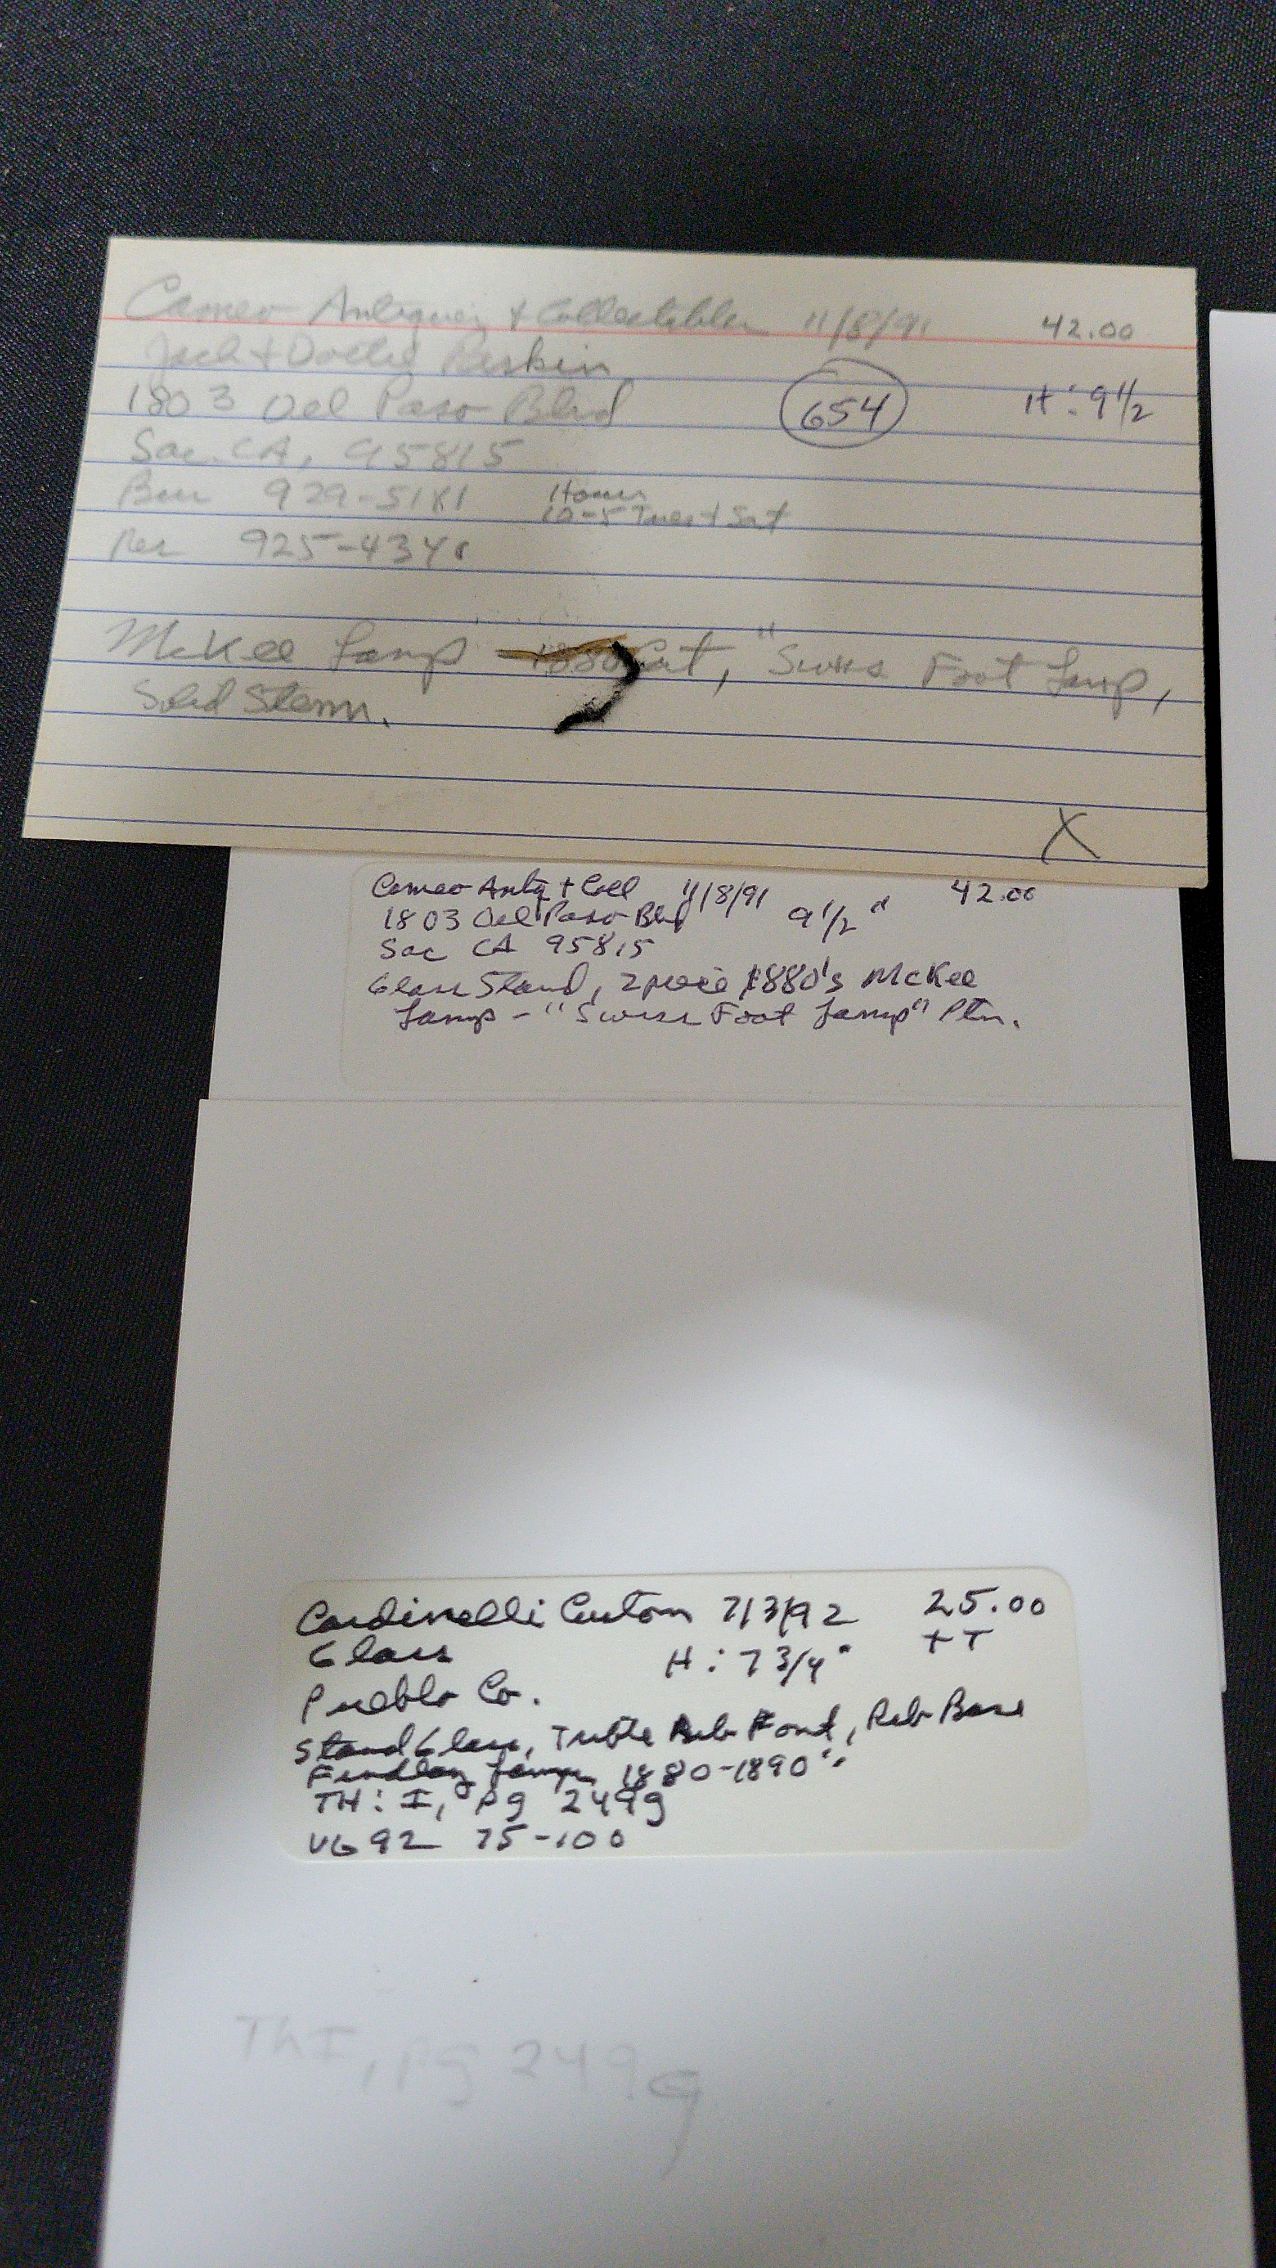 Cameo Antiques & Collectibles 11/8/91 42.00
Jack + Dollie Riskin
1803 Del Paso Blvd 654 H: 9 1/2
Sac. CA, 95815
Bus 929-5181 Hours
10-5 Tues + Sat
Res 925-434
McKee Lamp - 1880 Cat, "Swiss Foot Lamp,
Solid Stem.
X
Cameo Antq + Coll 11/8/91 42.00
1803 Del Paso Blvd 9 1/2"
Sac CA 95815
Glass Stand, 2 piece 1880's McKee
Lamp - "Swiss Foot Lamp" Ptn.
Cardinelli Custom 7/3/92 25.00
Glass H: 7 3/4" + T
Pueblo Co.
Stand Glass, Rib Font, Rib Base
Findlay Lamp 1880-1890's
TH: I, pg 249g
VG 92 75-100
Th I, pg 249g